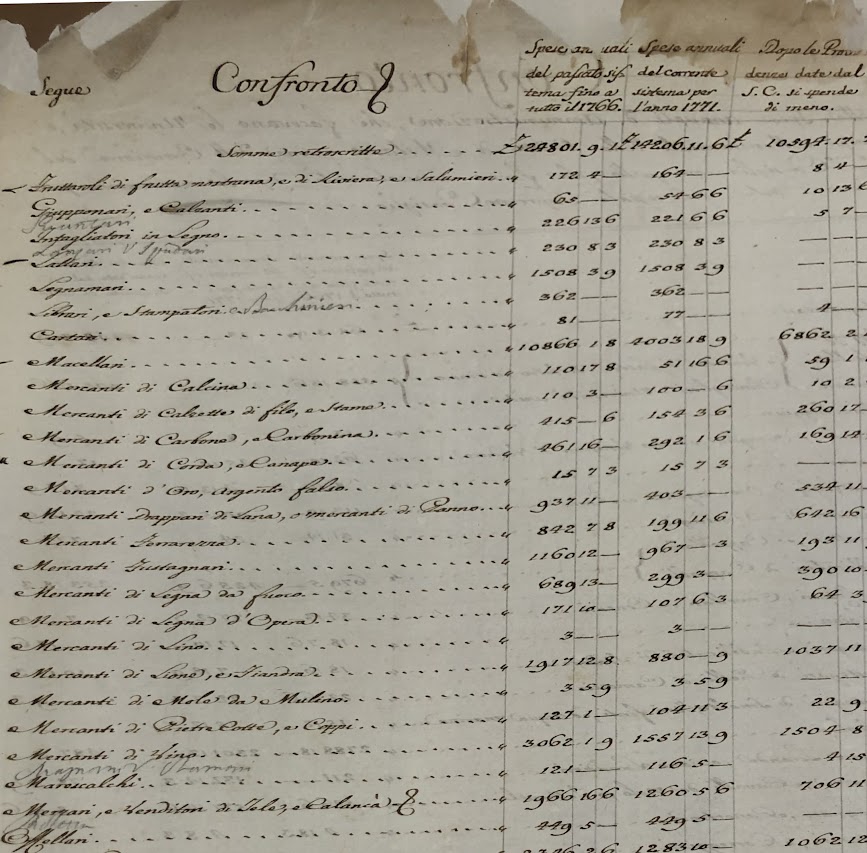 Segue Confronto
Spese annuali del passato sistema fino a tutto il 1766.
Spese annuali del corrente sistema per l'anno 1771.
Dopo le Provvidenze date dal S. C. si spende di meno.
Somme retroscritte . . . . . £ 24801. 9. 1 £ 14206. 11. 6 £ 10594. 17.
Fruttaroli di frutta nostrana, e di Riviera, e Salumieri. " 172 4 — 164 — — 8 4 —
Giupponari, e Calzanti . . . . " 65 — — 54 6 6 10 13 6
Intagliatori in Legno . . . . " 226 13 6 221 6 6 5 7
Lattari . . . . " 230 8 3 230 8 3 — — —
Legnamari . . . . " 1508 3 9 1508 3 9 — — —
Librari, e Stampatori . . . . " 362 — — 362 — — — — —
Cartari . . . . " 81 — — 77 — — 4 — —
Macellari . . . . " 10866 1 8 4003 18 9 6862 2
Mercanti di Calcina . . . . " 110 17 8 51 16 6 59 1
Mercanti di Calzette di filo, e Stame . . . . " 110 3 — 100 — 6 10 2
Mercanti di Carbone, e Carbonina . . . . " 415 — 6 154 3 6 260 17
Mercanti di Corda, e Canape . . . . " 461 16 — 292 1 6 169 14
Mercanti d'Oro, Argento falso . . . . " 15 7 3 15 7 3 — — —
Mercanti Drappari di Lana, o mercanti di Panno . . . " 937 11 — 403 — — 534 11
Mercanti Ferrarezza . . . . " 842 7 8 199 11 6 642 16
Mercanti Fustagnari . . . . " 1160 12 — 967 — 3 193 11
Mercanti di Legna da fuoco . . . . " 689 13 — 299 3 — 390 10
Mercanti di Legna d'Opera . . . . " 171 10 — 107 6 3 64 3
Mercanti di Lino . . . . " 3 — — 3 — — — — —
Mercanti di Lione, e Fiandra . . . . " 1917 12 8 880 — 9 1037 11
Mercanti di Mole da Mulino . . . . " 3 5 9 3 5 9 — — —
Mercanti di Pietre Cotte, e Coppi . . . . " 127 1 — 104 11 3 22 9
Mercanti di Vino . . . . " 3062 1 9 1557 13 9 1504 8
Marescalchi . . . . " 121 — — 116 5 — 4 15
Merzari, e Venditori di Tele, e Calancà . . . . " 1966 16 6 1260 5 6 706 11
Mollari . . . . " 449 5 — 449 5 — — — —
1283 10 — 1062 12